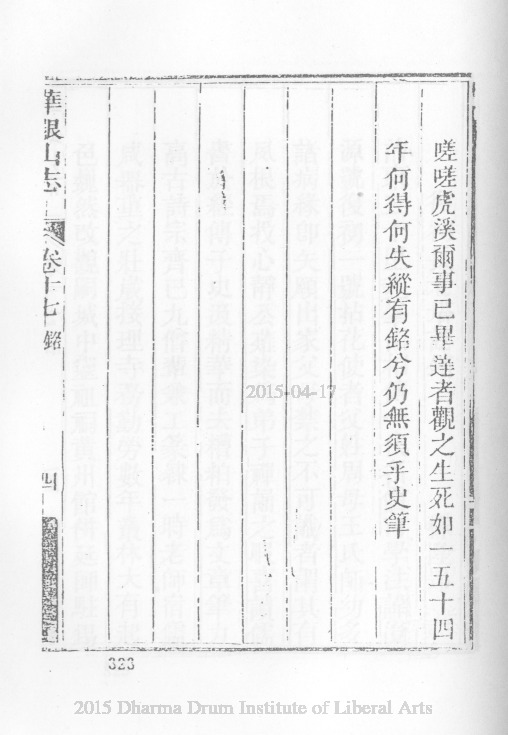 嗟嗟虎溪爾事已畢達者觀之生死如一五十四
年何得何失縱有銘兮仍無須乎史筆
華銀山志
卷十七 銘
四
2015-04-17
323
2015 Dharma Drum Institute of Liberal Arts